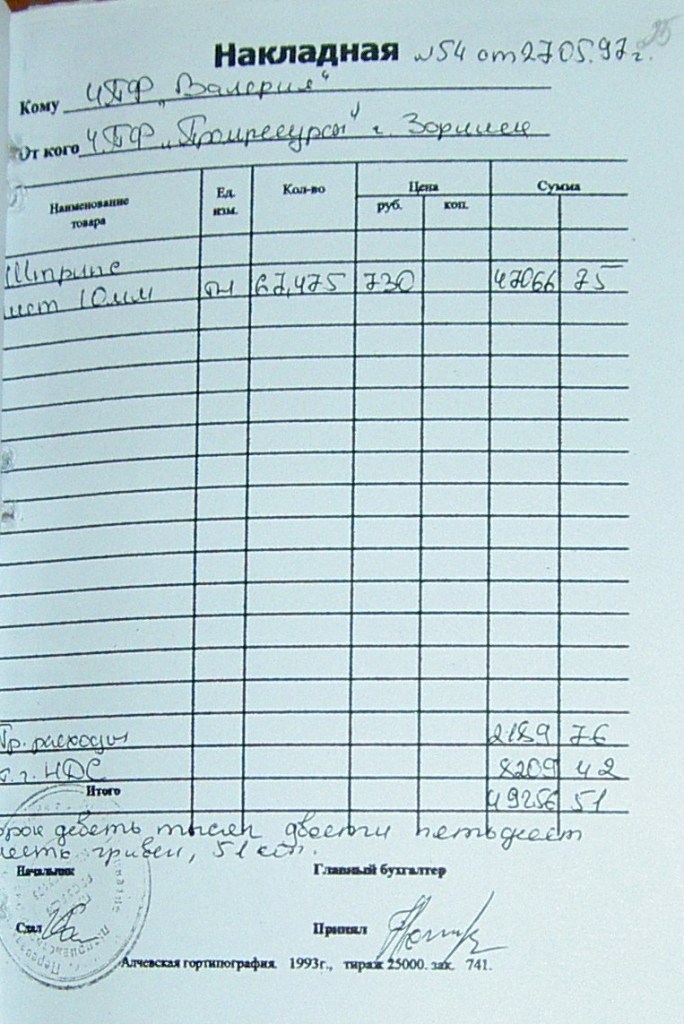 95
Накладная №54 от 27.05.97г.
Кому ЧПФ „Валерия“
От кого ЧПФ „Промресурсы“ г. Зоринец
Наименование товара Ед. изм. Кол-во Цена Сумма
руб. коп.
Штрипс
лист 10мм тн 67,475 730 47066 75
Тр. расходы 2189 76
т.г. НДС 8209 42
Итого 49256 51
орок деветь тысяч двести петьдесят
шесть гривен, 51 коп.
Начальник Главный бухгалтер
Сдал Принял
Алчевская гортипография. 1993г., тираж 25000. зак. 741.